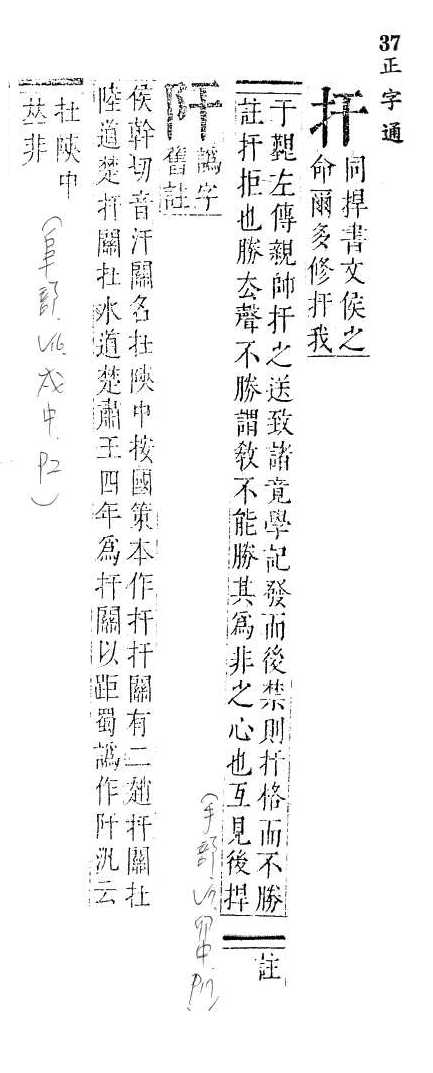 37 正字通
扞
同捍書文侯之
命爾多修扞我
于艱左傳親帥扞之送致諸竟學記發而後禁則扞格而不勝
註扞拒也勝去聲不勝謂敎不能勝其爲非之心也互見後捍
註
(手部, 卯中, P17)
譌字
舊註
侯幹切音汗關名在陝中按國策本作扞扞關有二趙扞關在
陸道楚扞關在水道楚肅王四年爲扞關以距蜀譌作 汎云
在陝中
𠀤非
(阜部, V16, 戌中, P2)